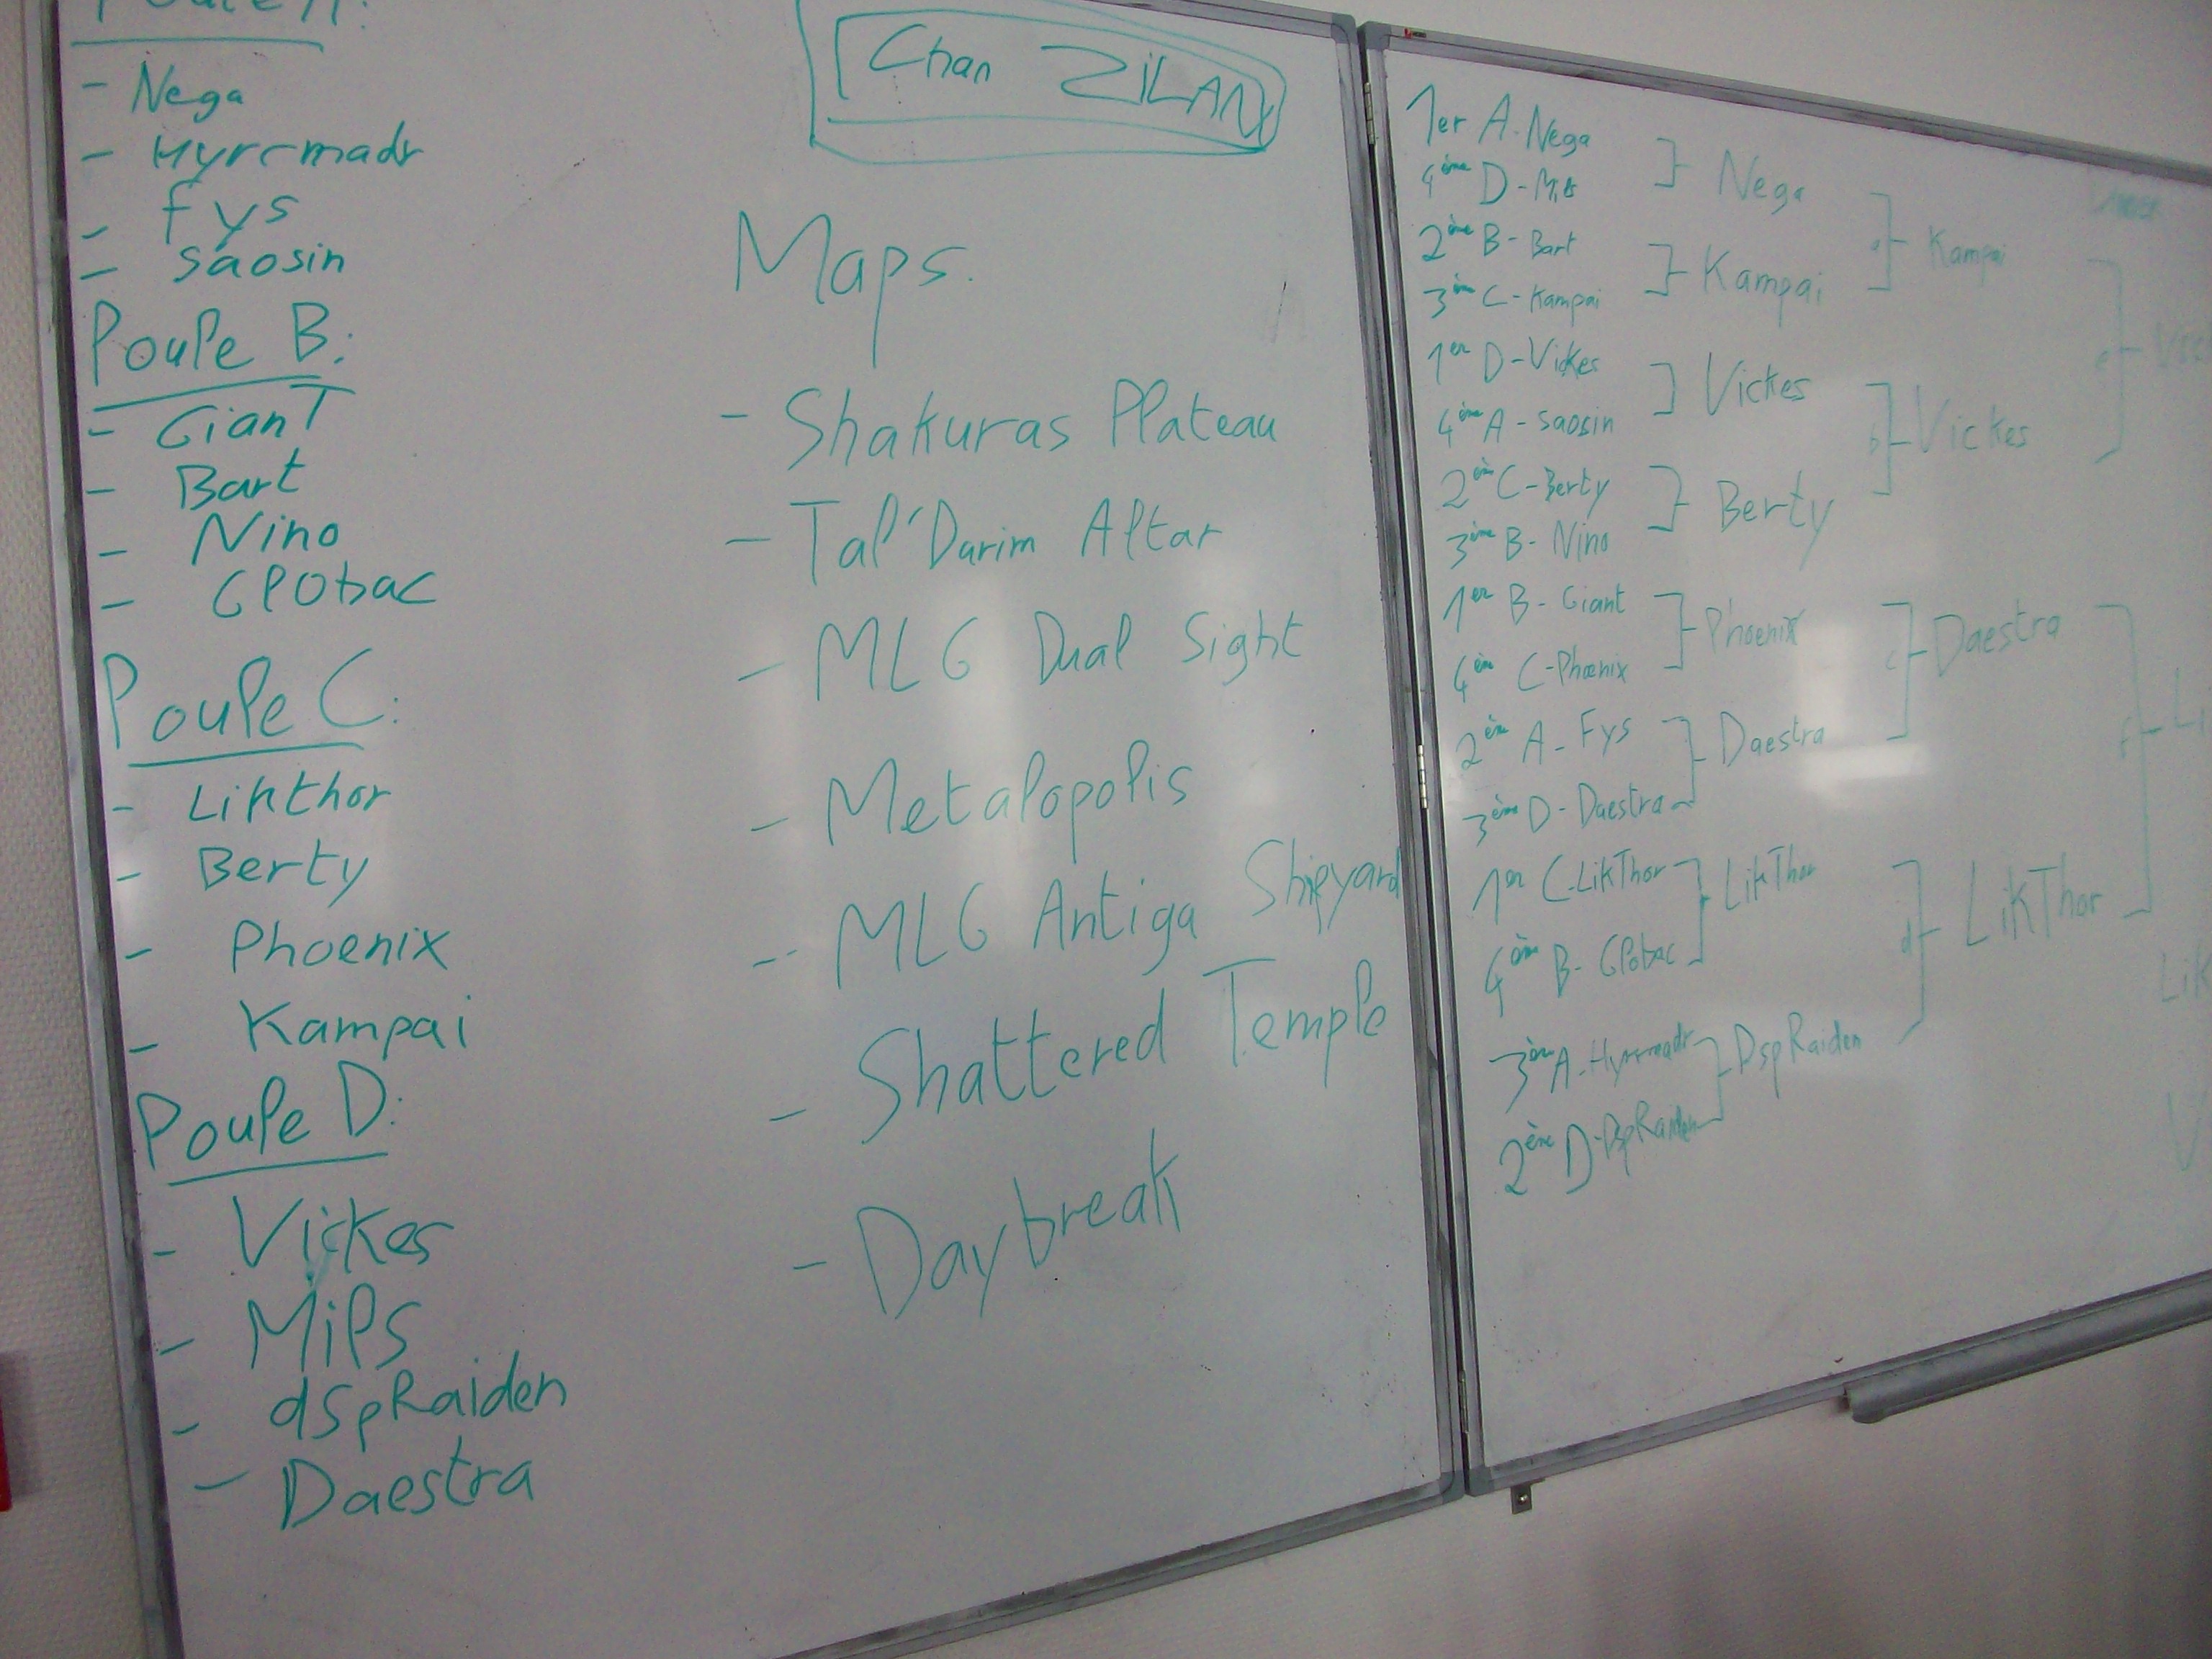 Poule A:
- Nega
- Hyrrmadr
- Fys
- Saosin
Poule B:
- GianT
- Bart
- Nino
- GPObac
Poule C:
- LikThor
- Berty
- Phoenix
- Kampai
Poule D:
- Vickes
- MiPS
- dSpRaiden
- Daestra
Chan ZiLAN
Maps.
- Shakuras Plateau
- Tal'Darim Altar
- MLG Dual Sight
- Metalopolis
- MLG Antiga Shipyard
- Shattered Temple
- Daybreak
1er A-Nega
4ème D-
2ème B-Bart
3ème C-Kampai
1er D-Vickes
4ème A-Saosin
2ème C-Berty
3ème B-Nino
1er B-Giant
4ème C-Phoenix
2ème A-Fys
3ème D-Daestra
1er C-LikThor
4ème B-GPobac
3ème A-Hyrrmadr
2ème D-DspRaiden
Nega
Kampai
Vickes
Berty
Phoenix
Daestra
LikThor
DspRaiden
a Kampai
b Vickes
c Daestra
d LikThor